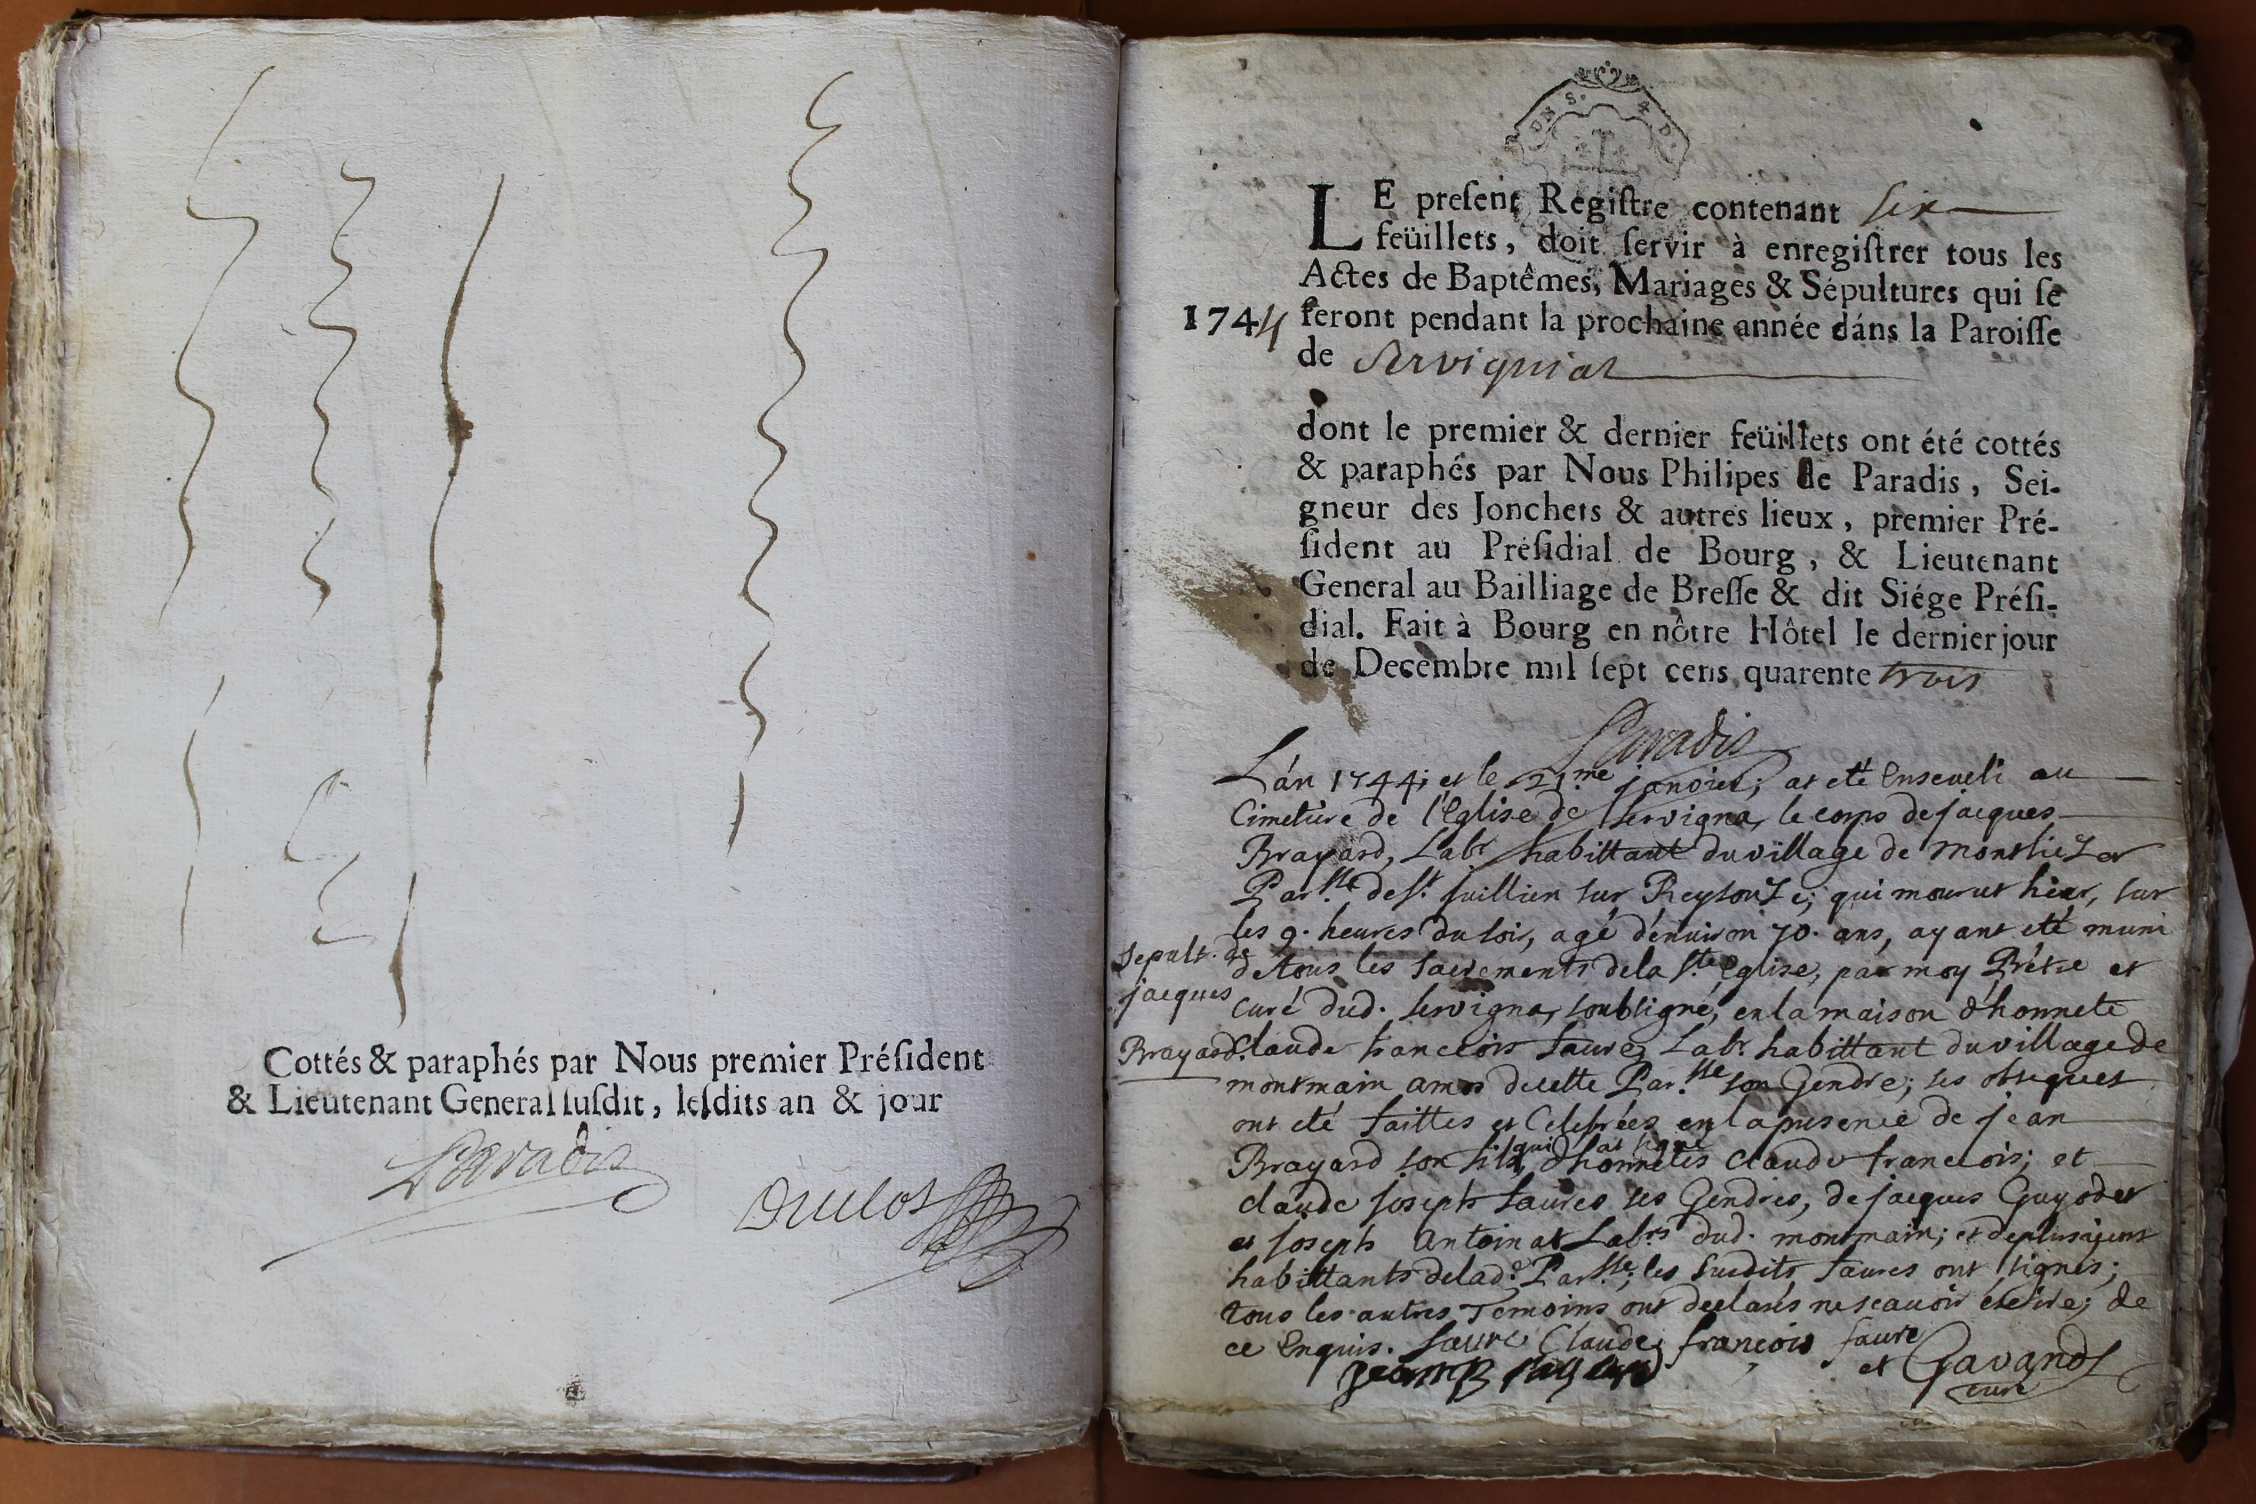 Cottés & paraphés par Nous premier Préſident
& Lieutenant General ſuſdit, leſdits an & jour
Paradis
Duclos
UN S. 4 D.
LE preſent Regiſtre contenant six
feüillets, doit ſervir à enregiſtrer tous les
Actes de Baptêmes, Mariages & Sépultures qui ſe
1744 feront pendant la prochaine année dáns la Paroiſſe
de Servignat
dont le premier & dernier feüillets ont été cottés
& paraphés par Nous Philipes de Paradis, Sei-
gneur des Jonchets & autres lieux, premier Pré-
ſident au Préſidial de Bourg, & Lieutenant
General au Bailliage de Breſſe & dit Siége Préſi-
dial. Fait à Bourg en nôtre Hôtel le dernier jour
de Decembre mil ſept cens quarente trois
Paradis
L'án 1744; et le 21.me janvier; at eté Enseveli au
Cimetiere de l'Eglise de Servignat le corps de jacques
Brayard, Labr habittant du village de montliezer
Par.sse de st. juillien sur Reysouze; qui mourut hier, sur
les 9. heures du soir, agé d'enuiron 70. ans, ayant eté muni
de tous les sacrements de la ste Eglise, par moy Prêtre et
curé dud. Servignat soubsigné, en la maison d'honnete
Claude francois faure, Labr. habittant du village de
montmain amos dicelle Par.sse son Gendre; ses obseques
ont eté faittes et Celebrées en la presence de jean
Brayard son fils, qui at signé d'honnetes claude francois; et
claude joseph faures ses Gendres, de jacques Guyodet
et joseph Antoinat Lab.rs dud. montmain; et de plusieurs
habittants de lad.e Par.sse; les susdits faures ont signés;
tous les autres Temoins ont declarés ne scauoir écrire; de
ce Enquis. faure Claude francois faure
jean Brayard et Gavand
curé
sepult. de
jacques
Brayard